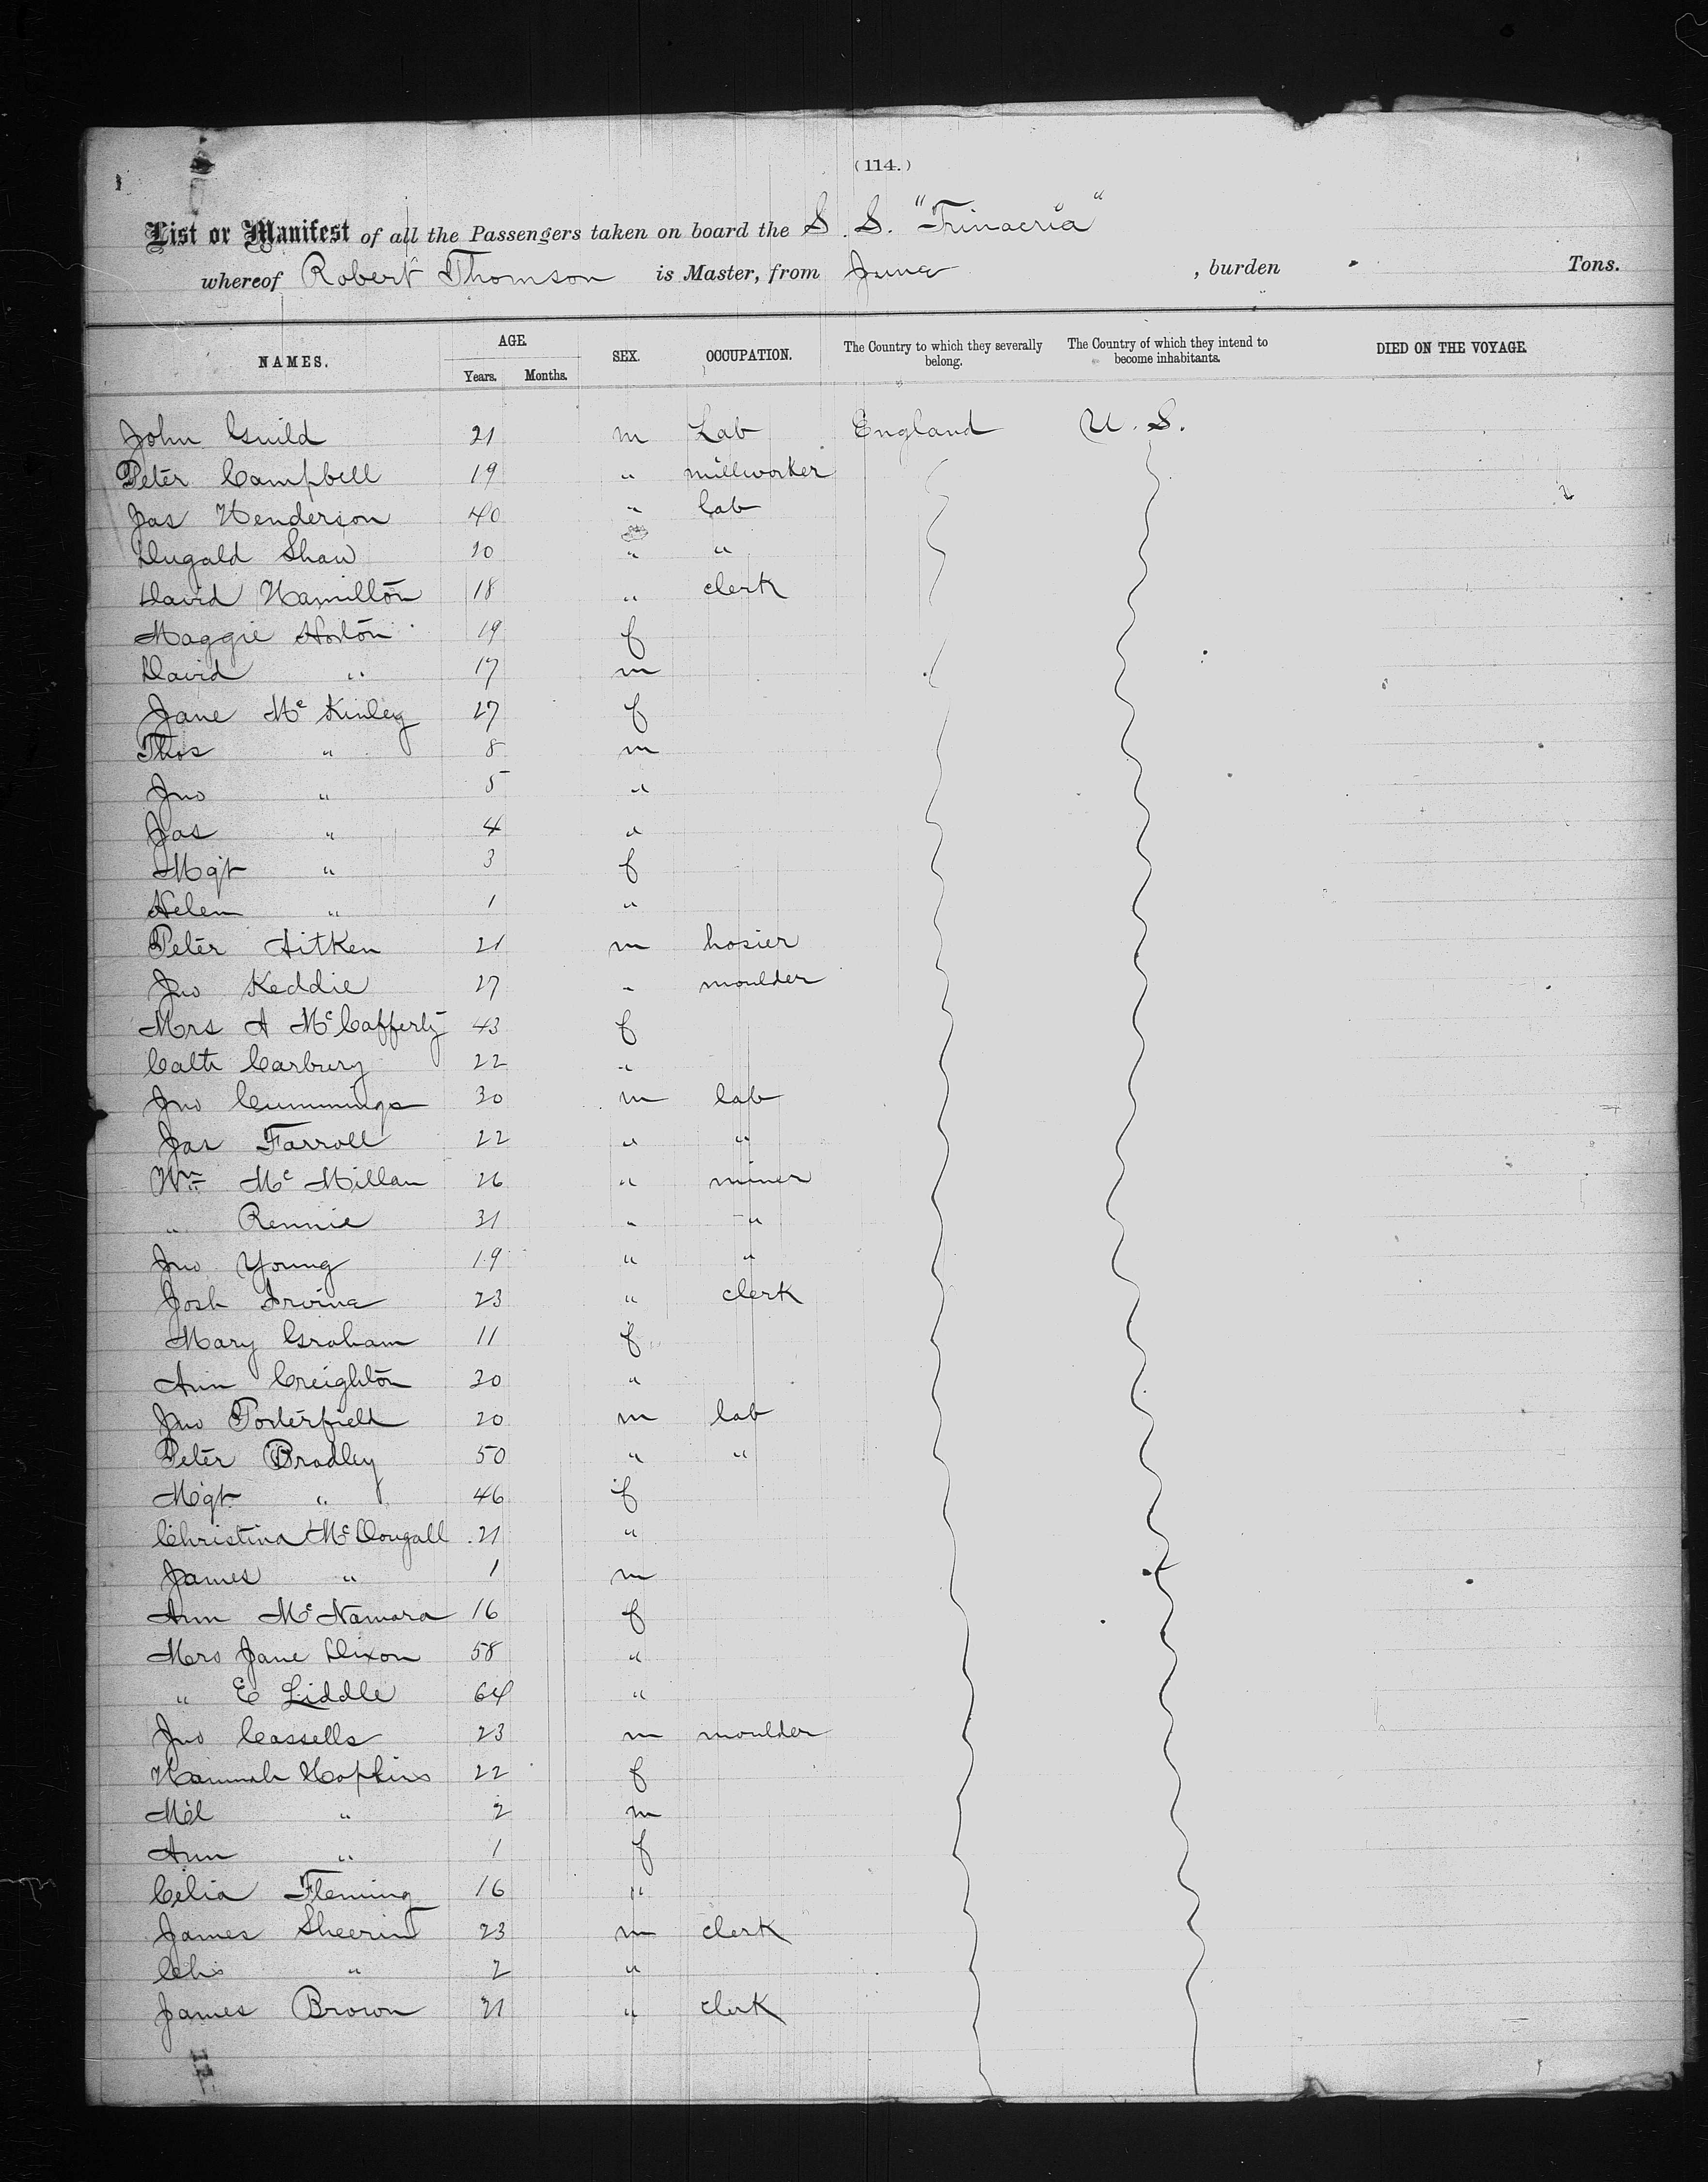 (114.)
List or Manifest of all the Passengers taken on board the S. S. "Trinacria"
whereof Robert Thomson is Master, from , burden Tons.
NAMES. AGE. SEX. OCCUPATION. The Country to which they severally belong. The Country of which they intend to become inhabitants. DIED ON THE VOYAGE.
Years. Months.
John Guild 21 m Lab England U. S.
Peter Campbell 19 " millworker
Jas Henderson 40 " lab
Dugald Shaw " "
David Hamilton 18 " clerk
Maggie 19 f
David " 17 m
Jane Mc Kinley 27 f
Thos " 8 m
Jno " 5 "
Jas " 4 "
Mgt " 3 f
Helen " 1 "
Peter Aitken 21 m hosier
Jno Keddie 27 " moulder
Mrs A McCafferty 43 f
Cath Carbury 22 "
Jno Cummings 30 m lab
Jas Farroll 22 " "
Wm Mc Millan 26 " miner
" Rennie 31 " "
Jno Young 19 " "
Josh Irvine 23 " clerk
Mary Graham 11 f
Ann Creighton 30 "
Jno Porterfield 20 m lab
Peter Bradley 50 " "
Mgt " 46 f
Christina McDougall 21 "
James " 1 m
Ann McNamara 16 f
Mrs Jane Dixon 58 "
" E Liddle 64 "
Jno Cassells 23 m moulder
Hannah Hopkins 22 f
Ml " 2 m
Ann " 1 f
Celia Fleming 16 "
James Sheerin 23 m clerk
" 2 "
James Brown 21 " clerk